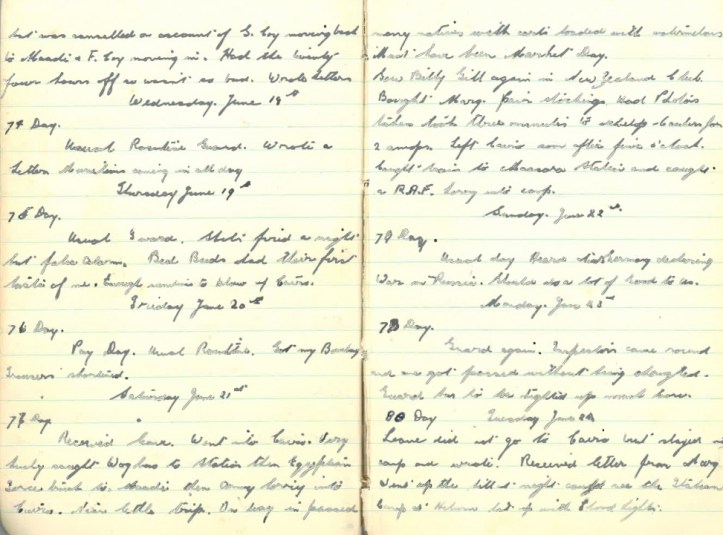 but was cancelled on account of G. Coy moving back
to Maadi & F. Coy moving in. Had the twenty
four hours off so wasn't so bad. Wrote letters
Wednesday. June 18th
74 Day.
Usual Routine Guard. Wrote a
letter
Thursday June 19th
75 Day.
Usual Guard. Shots fired at night
but false alarm. Bed Bugs had their first
taste of me. Enough to blow up Cairo.
Friday June 20th
76 Day.
Pay Day. Usual Routine. Got my Bombay
Trousers shortened.
Saturday June 21st
77 Day
Received leave. Went into Cairo. Very
lucky caught Wog bus to Station then Egyptian
to Maadi then Army lorry into
Cairo. Nice little trip. On way in passed
many natives with carts loaded with watermelons
Must have been Market Day.
Saw Billy Gill again in New Zealand Club.
Bought Marg. pair stockings. Had Photos
taken took three minutes to develop
2 snaps. Left Cairo soon after five o'clock.
Caught train to Maasara Station and caught
a R.A.F. lorry into camp.
Sunday. June 22nd.
78 Day.
Usual day Heard Germany declaring
War on Russia. Should do a lot of good to us.
Monday. June 23rd
79 Day.
Guard again. Inspectors came round
and we got passed without being challenged.
Guard has to be tightened up now.
80 Day Tuesday June 24
Leave did not go to Cairo but stayed in
camp and wrote. Received letter from Marg.
Went up the hill at night and saw the Italian
Camp at Helwan lit up with Flood lights.